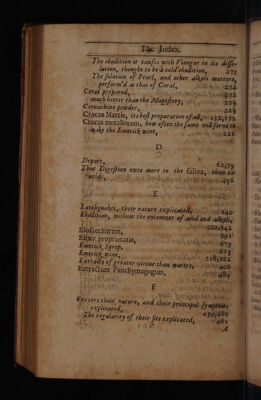 The Index.
The ebullition it causes with Vinegar in its disso-
lution, thought to be a cold ebullition, 273
The solution of Pearl, and other alkali matters,
perform'd as that of Coral, 274
Coral prepared, 272
much better than the Magistery, 275
Cornachine powder, 229
Crocus Martis, its best preparation 132,172
Crocus metallorum, how often the same will serve to
make the Emetick wine, 221
D
Depart, 62,79
Digestion owes more to the saliva, than to
acids, 456
E
Earthquakes, their nature explicated, 140
Ebullition, without the encounter of acid and alkali,
222,342
Elæosaccharum, 391
Elixir proprietatis, 479
Emetick Syrop, 225
Emetick wine, 218,222
Extracts of greater virtue than waters, 406
Extractum Panchymagogum, 484
F
Feavers their nature, and their principal symptoms
explicated, 459,460
The regularity of their fits explicated, 461
A